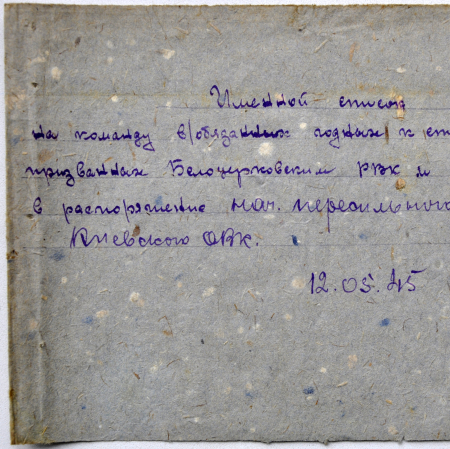 Именной список
на команду в/обязанных годных к ст
призванных Белоцерковским РВК и
в распоряжение нач. пересыльного
Киевского ОВК.
12.05.45